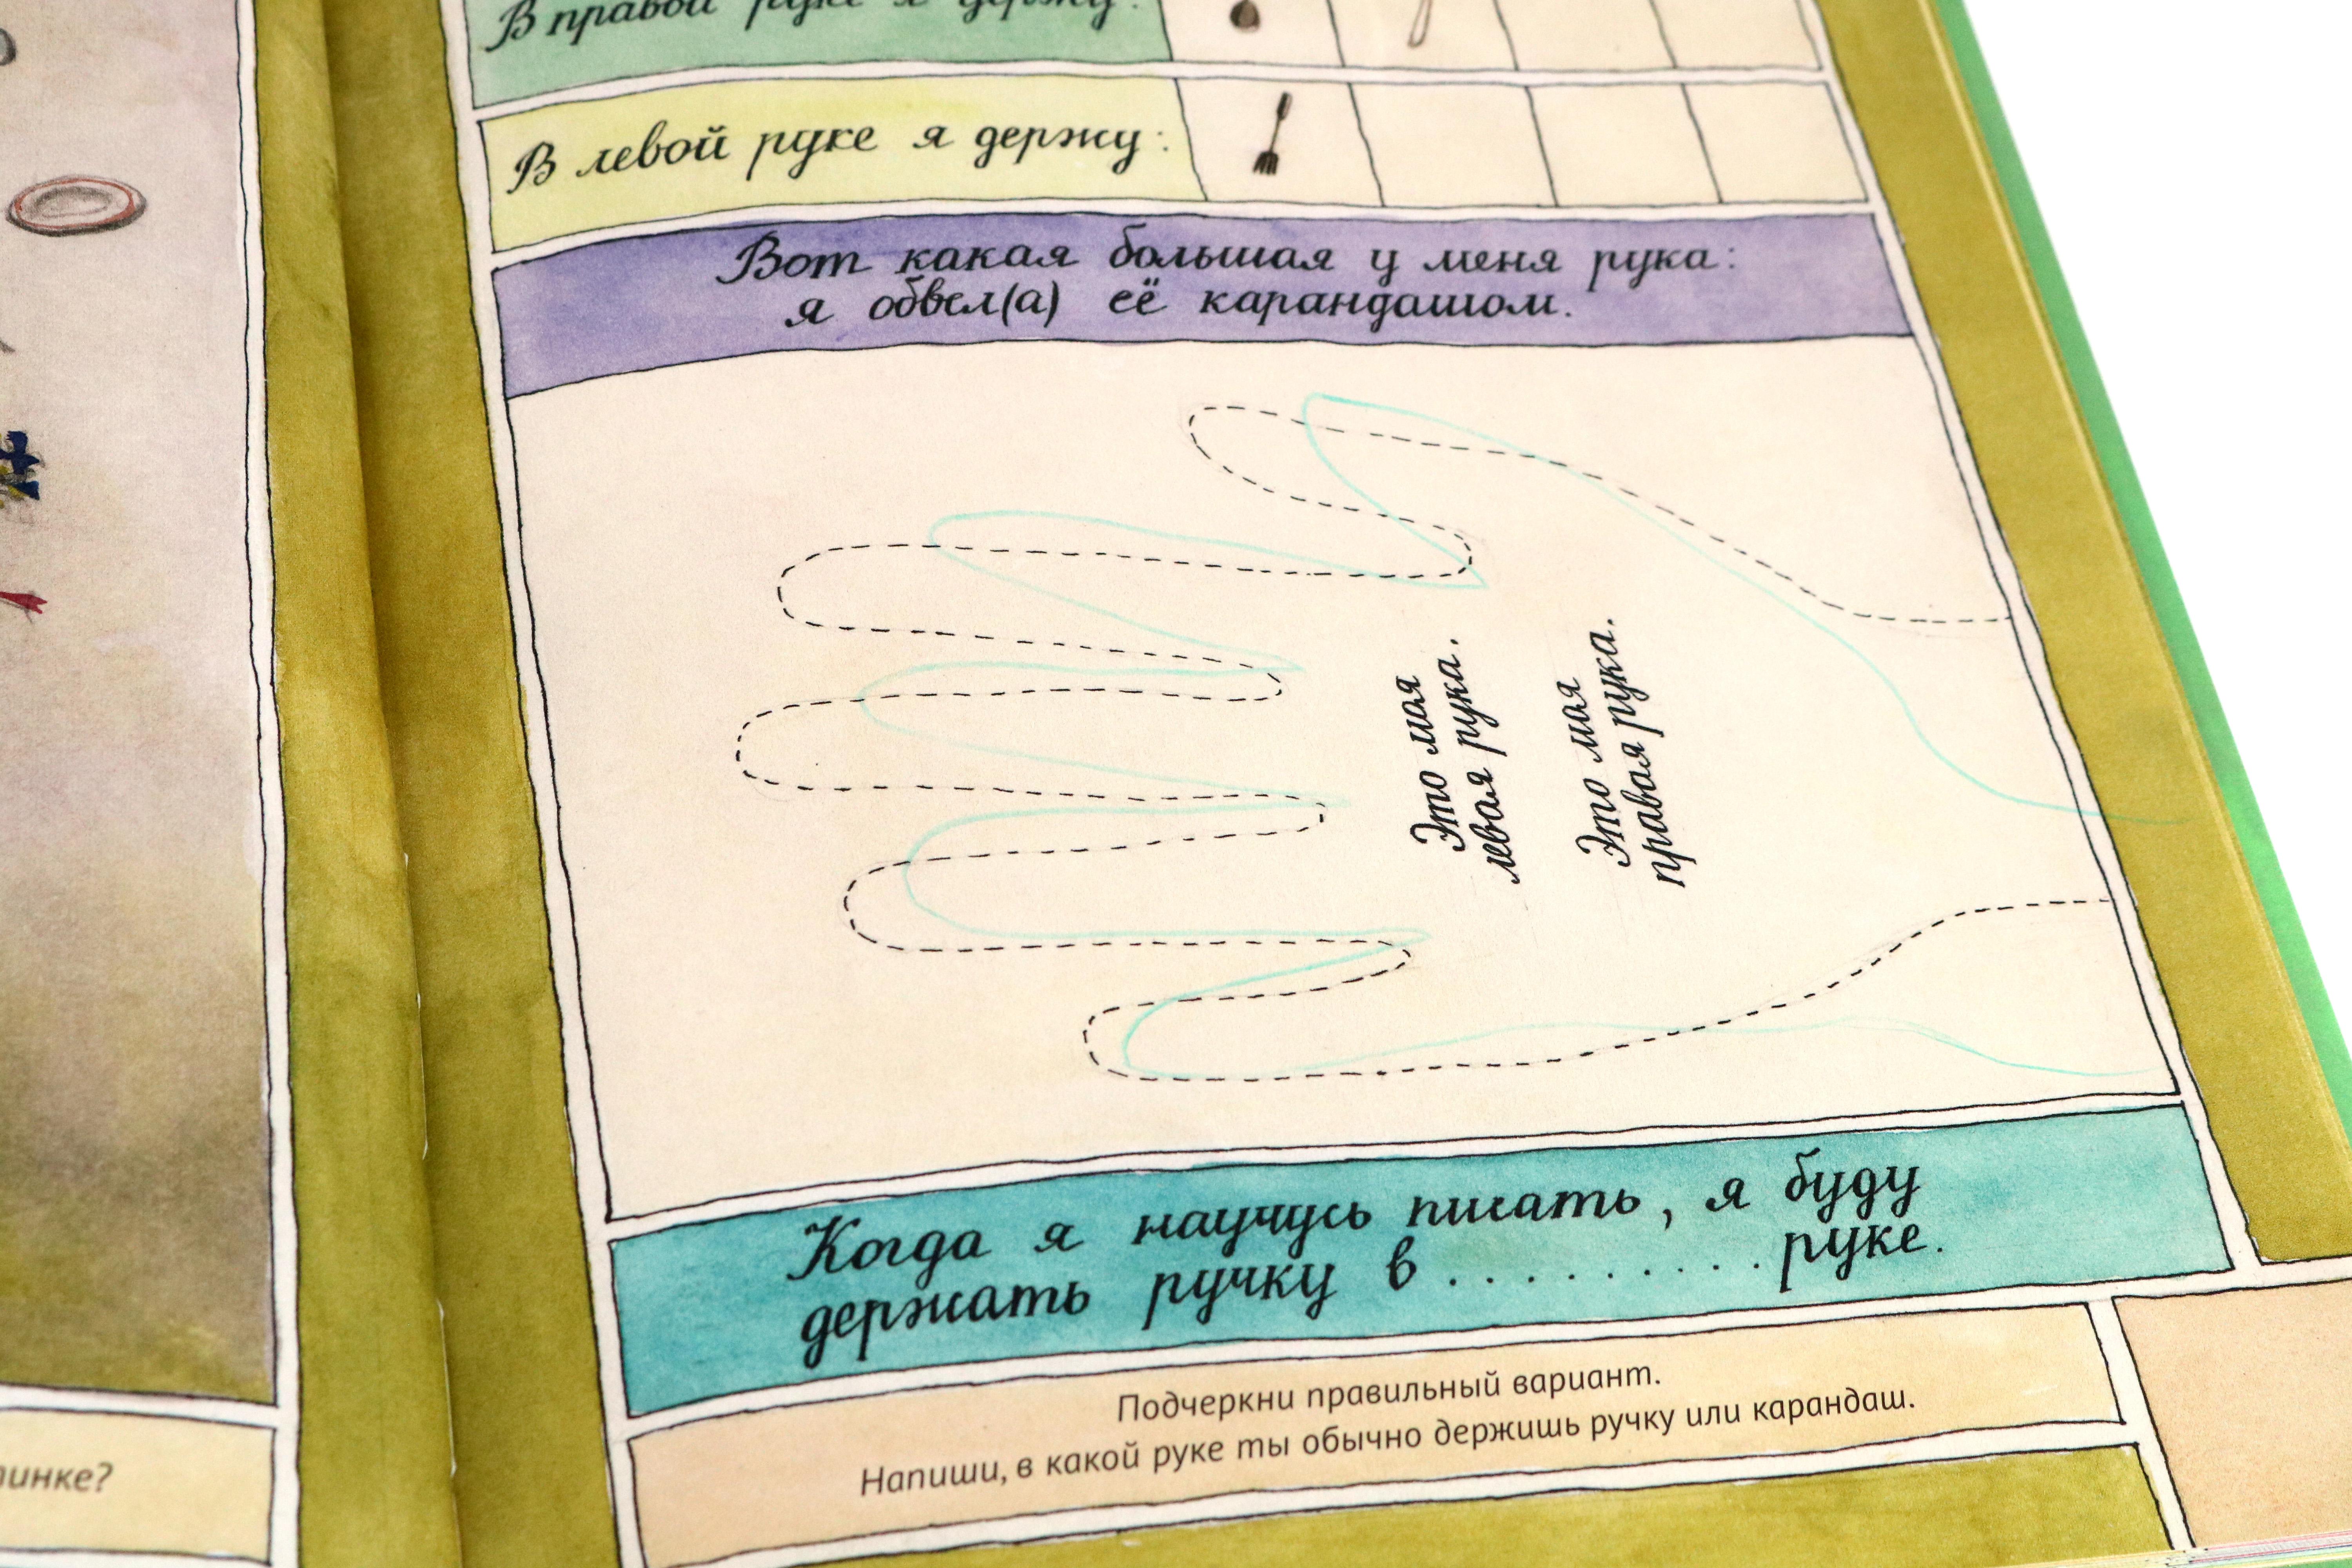 В правой руке я держу:
В левой руке я держу:
Вот какая большая у меня рука:
я обвел(а) её карандашом.
Это моя
левая рука.
Это моя
правая рука.
Когда я научусь писать, я буду
держать ручку в .......... руке.
Подчеркни правильный вариант.
Напиши, в какой руке ты обычно держишь ручку или карандаш.